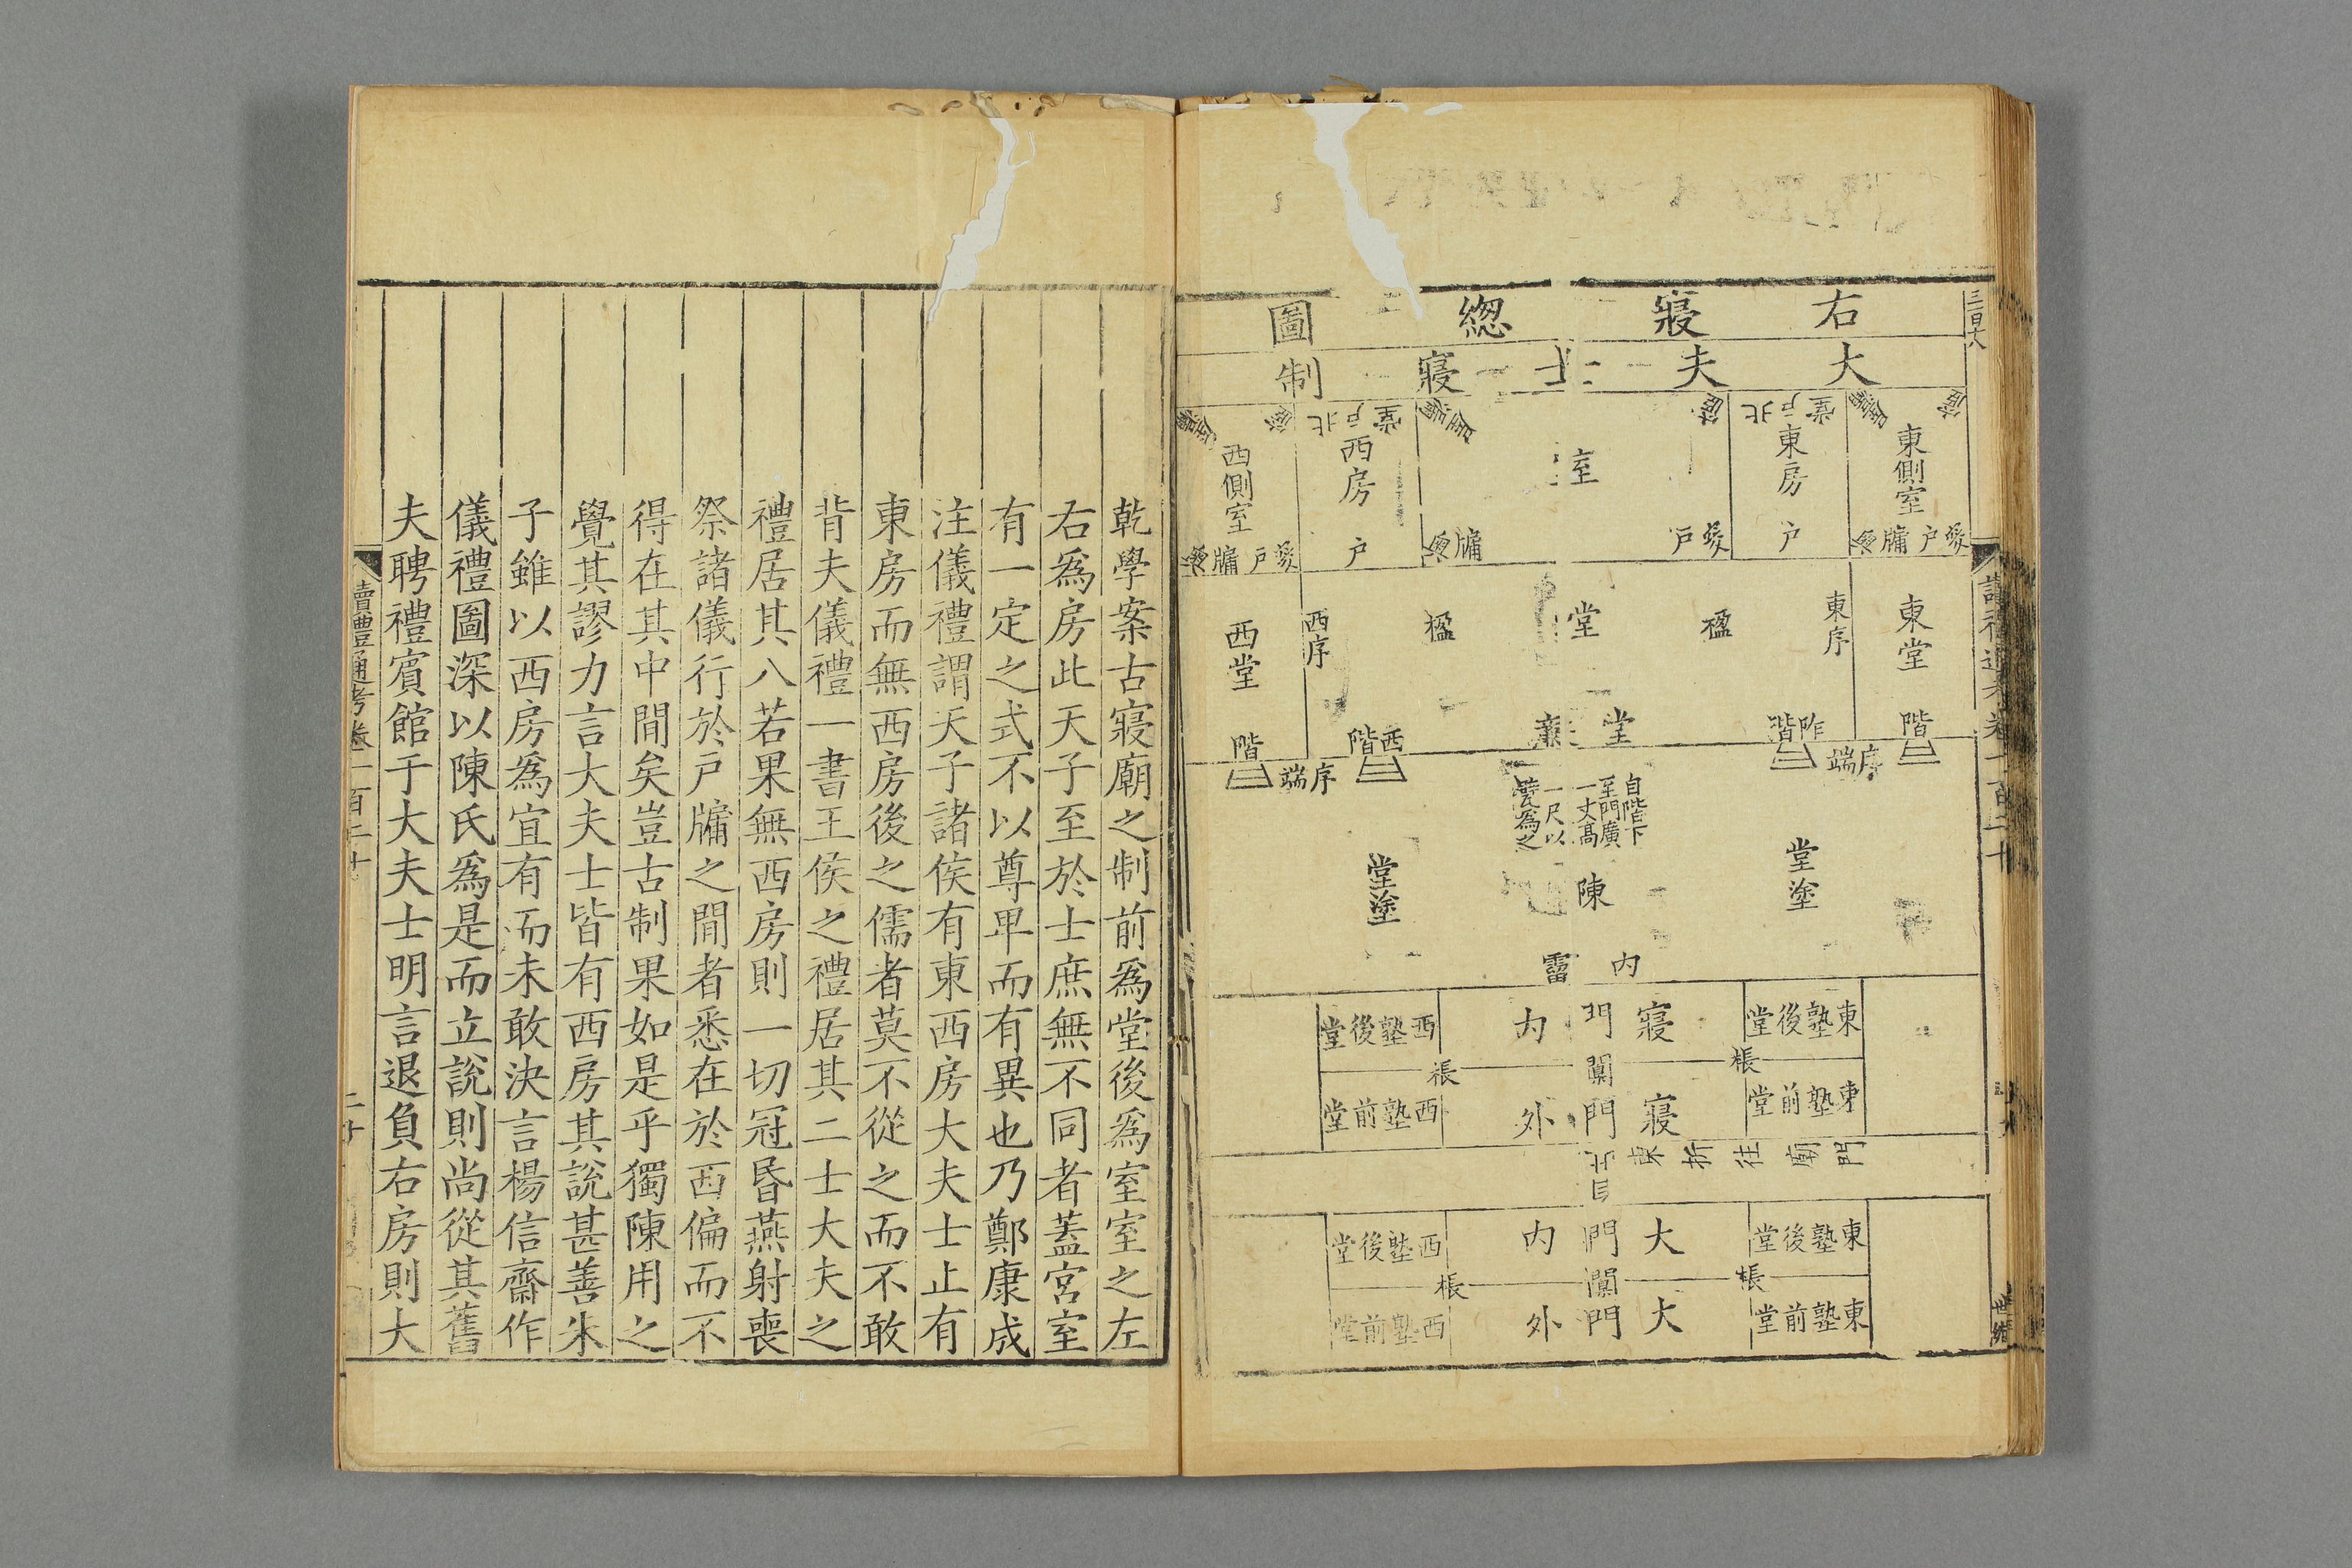 右寢總圖
大夫士寢制
東側室
東房
室
西房
西側室
北戶
戶
牖
戶
戶
牖
戶
戶
牖
東堂
東序
楹
堂
楹
西序
西堂
階
阼階
堂廉
西階
階
序端
序端
自階下
至門廣
一丈高
一尺以
甓為之
堂塗
陳
堂塗
內霤
東塾後堂
寢門內
西塾後堂
棖
闑
棖
東塾前堂
寢門外
西塾前堂
東折往廟門
東塾後堂
大門內
西塾後堂
棖
闑
棖
東塾前堂
大門外
西塾前堂
乾學案古寢廟之制前爲堂後爲室室之左
右爲房此天子至於士庶無不同者蓋宮室
有一定之式不以尊卑而有異也乃鄭康成
注儀禮謂天子諸侯有東西房大夫士止有
東房而無西房後之儒者莫不從之而不敢
背夫儀禮一書王侯之禮居其二士大夫之
禮居其八若果無西房則一切冠昏燕射喪
祭諸儀行於戶牖之間者悉在於西偏而不
得在其中間矣豈古制果如是乎獨陳用之
覺其謬力言大夫士皆有西房其說甚善朱
子雖以西房爲宜有而未敢決言楊信齋作
儀禮圖深以陳氏爲是而立說則尚從其舊
夫聘禮賓館于大夫士明言退負右房則大
讀禮通考卷一百二十
二十